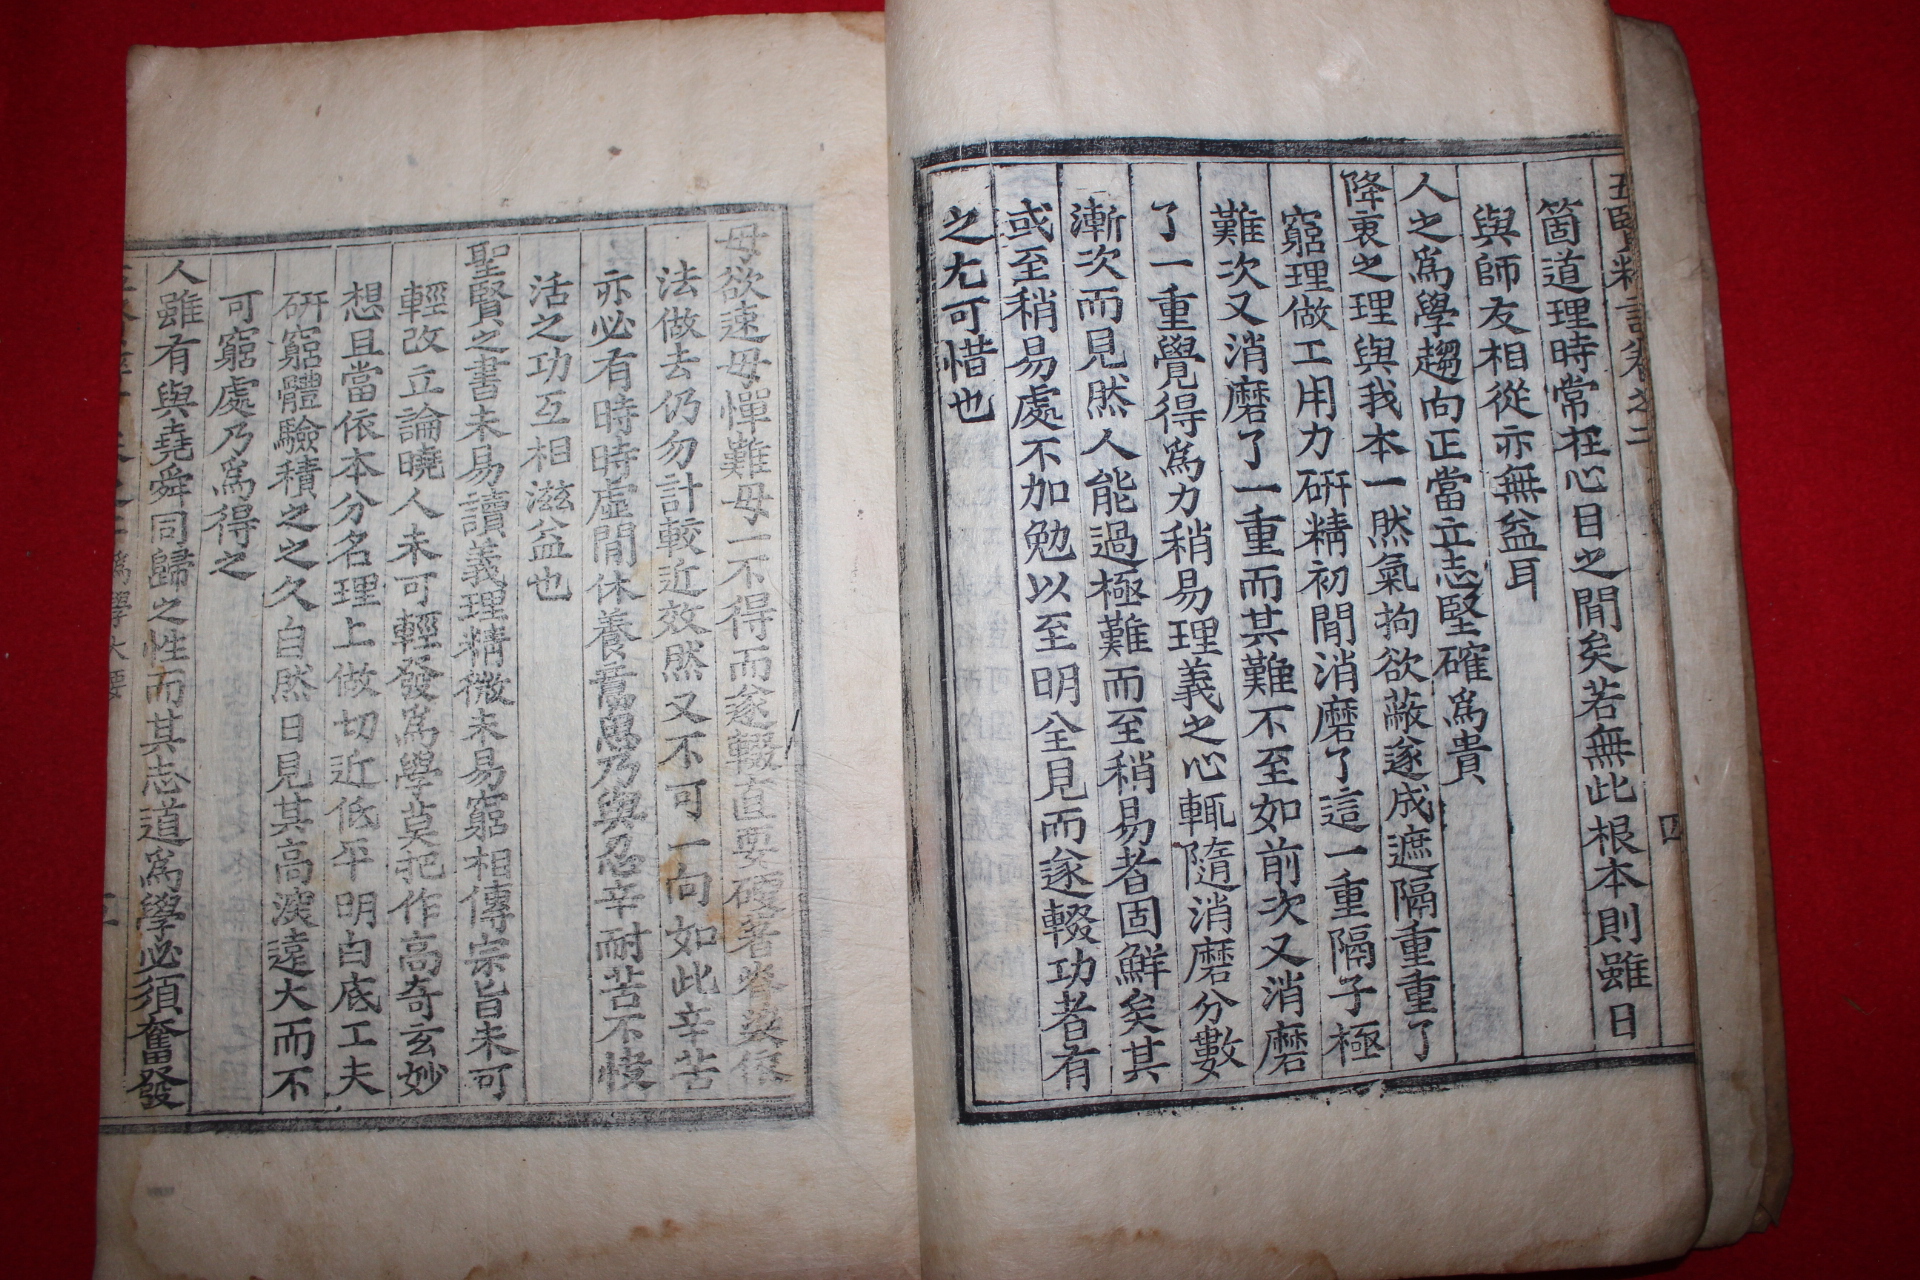 五賢粹言卷之二
四
箇道理時常在心目之間矣若無此根本則雖日
與師友相從亦無益耳
人之爲學趨向正當立志堅確爲貴
降衷之理與我本一然氣拘欲蔽遂成遮隔重重了
窮理做工用力硏精初間消磨了這一重隔子極
難次又消磨了一重而其難不至如前次又消磨
了一重覺得爲力稍易理義之心輒隨消磨分數
漸次而見然人能過極難而至稍易者固鮮矣其
或至稍易處不加勉以至明全見而遂輟功者有
之尤可惜也
毋欲速毋憚難毋一不得而遂輟直要硬著脊梁依
法做去仍勿計較近效然又不可一向如此辛苦
亦必有時時虛閒休養意思乃與忍辛耐苦不快
活之功互相滋益也
聖賢之書未易讀義理精微未易窮相傳宗旨未可
輕改立論曉人未可輕發爲學莫把作高奇玄妙
想且當依本分名理上做切近低平明白底工夫
硏窮體驗積之之久自然日見其高深遠大而不
可窮處乃爲得之
人雖有與堯舜同歸之性而其志道爲學必須奮發
爲學大要